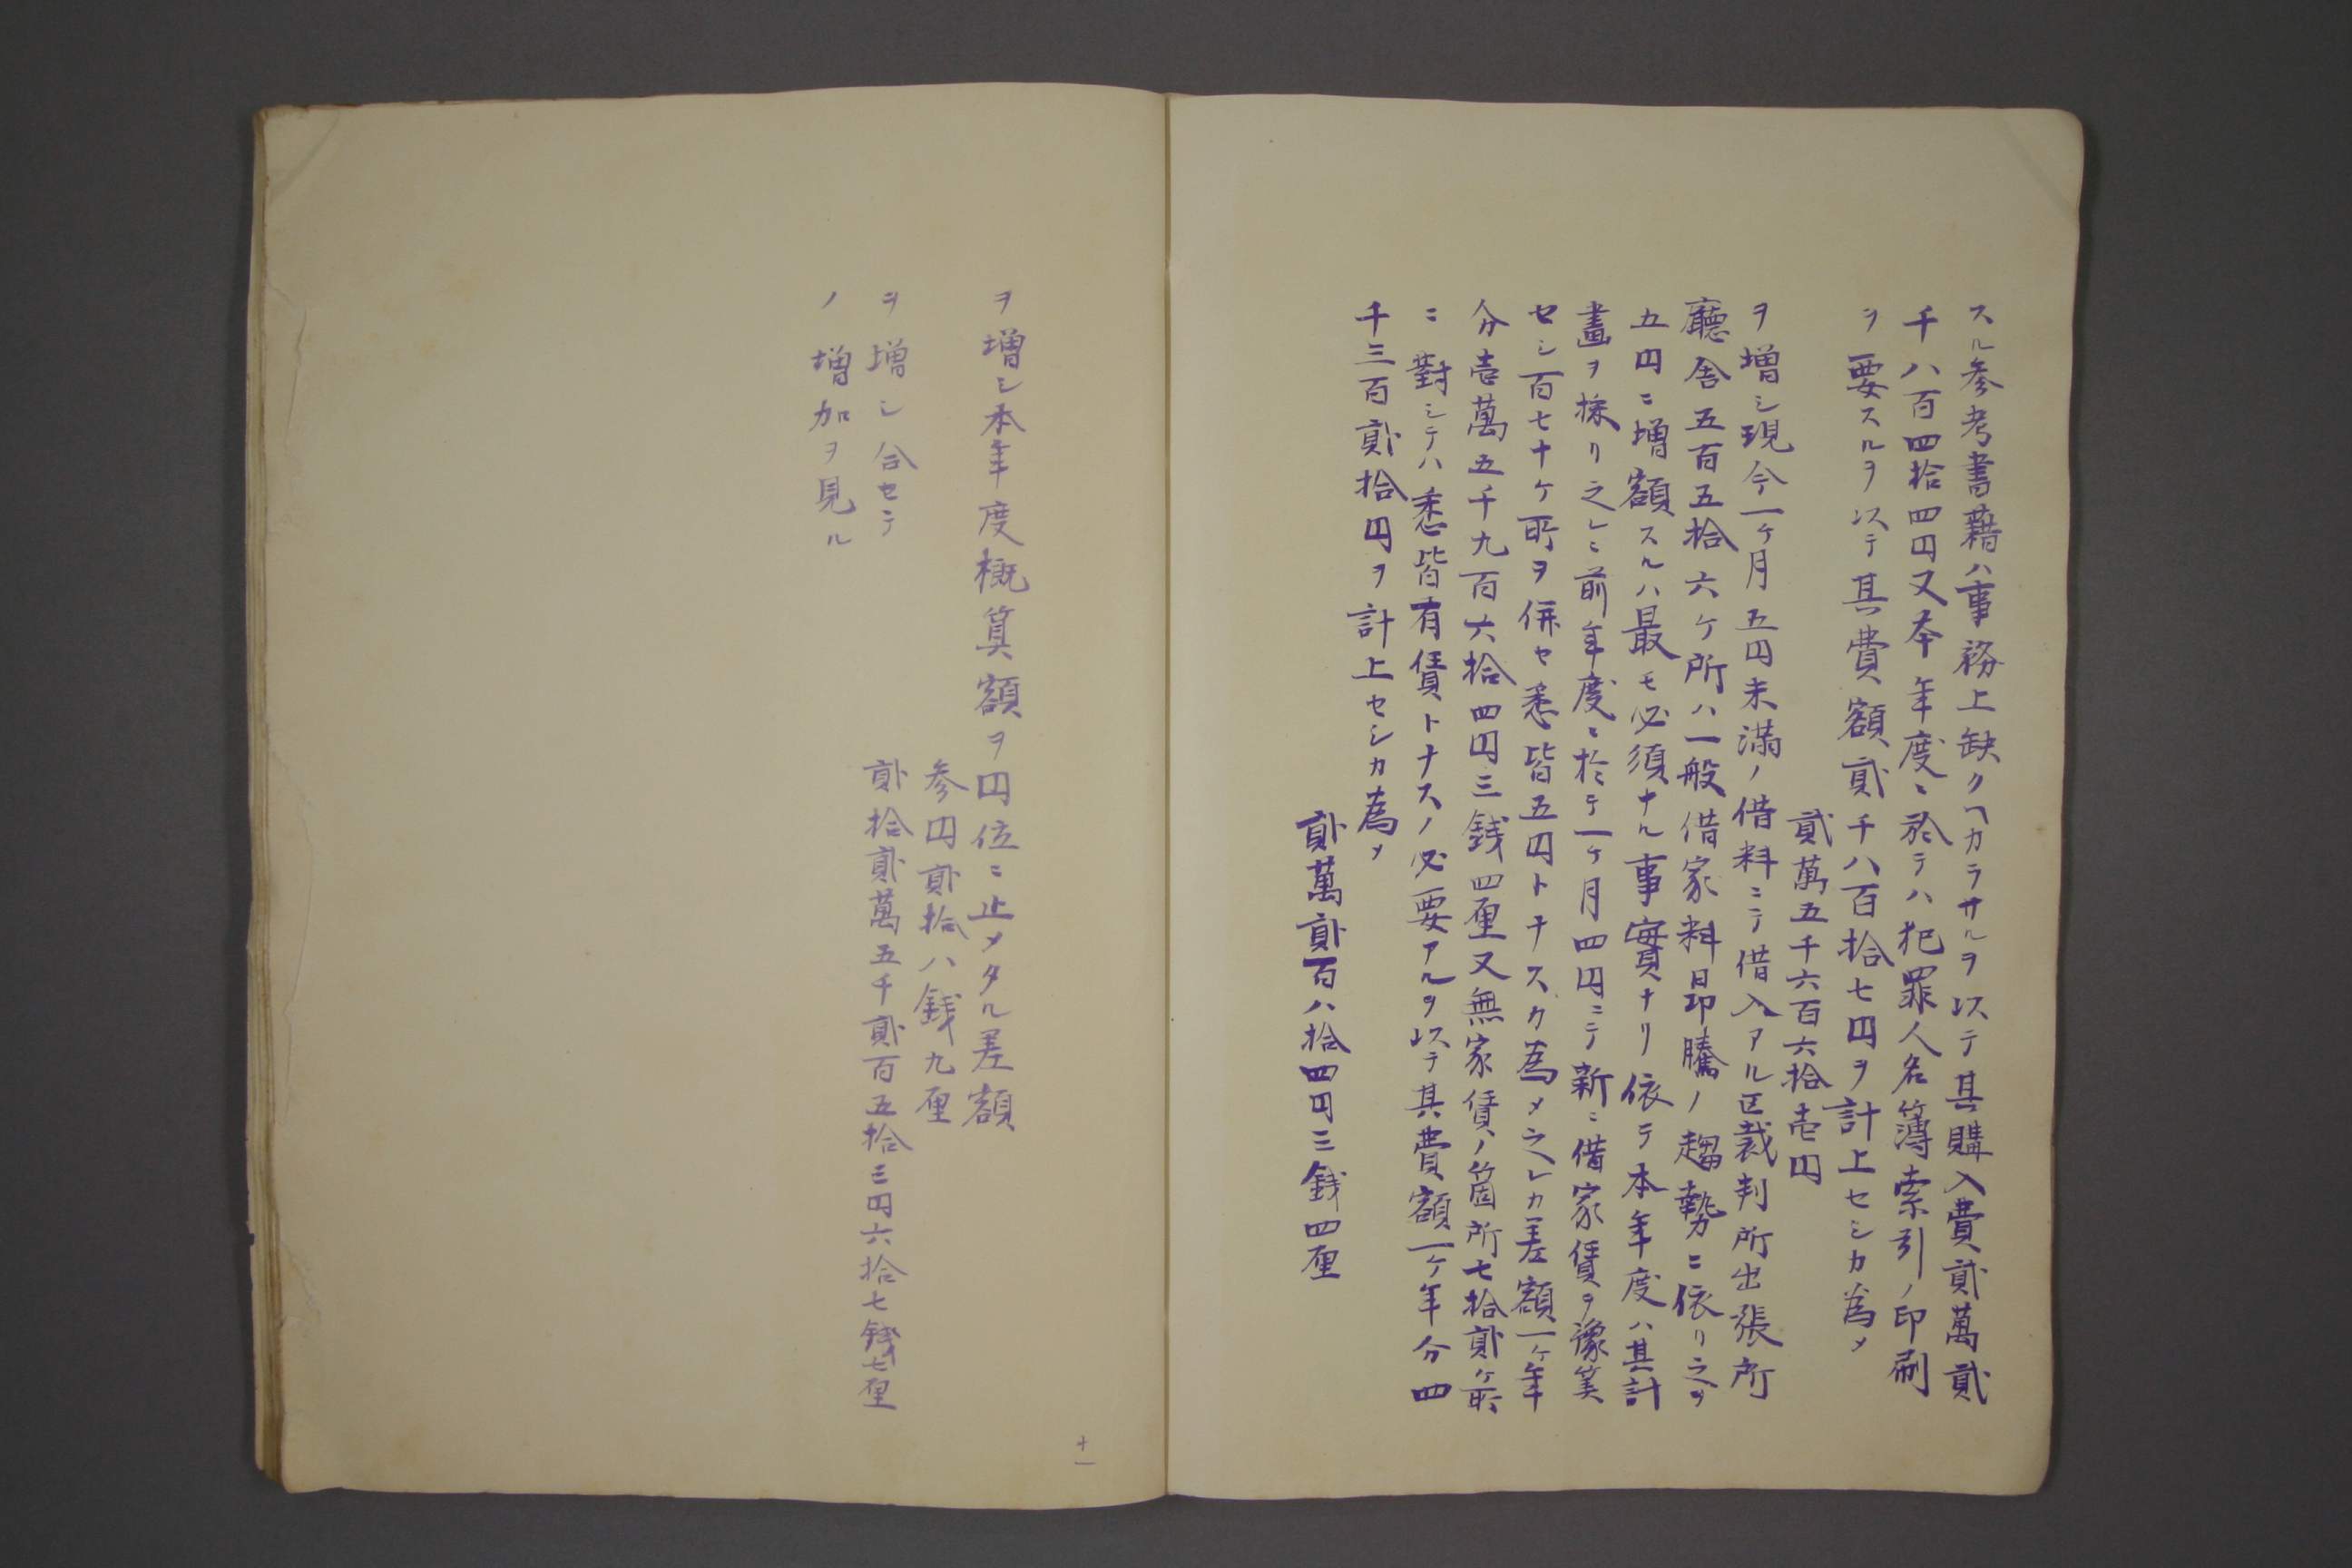 スル参考書藉ハ事務上缺クヘカラサルヲ以テ其購入費貳萬貳
千八百四拾四円又本年度ニ於テハ犯罪人名簿索引ノ印刷
ヲ要スルヲ以テ其費額貳千八百拾七円ヲ計上セシカ為メ
貳萬五千六百六拾壱円
ヲ増シ現今一ヶ月五円未満ノ借料ニテ借入アル区裁判所出張所
廳舎五百五拾六ケ所ハ一般借家料昂騰ノ趨勢ニ依リ之ヲ
五円ニ増額スルハ最モ必須ナル事實ナリ依テ本年度ハ其計
畫ヲ採リ之レニ前年度ニ於テ一ヶ月四円ニテ新ニ借家賃ヲ豫算
セシ百七十ケ所ヲ併セ悉皆五円トナスカ為メ之レカ差額一ヶ年
分壱萬五千九百六拾四円三銭四厘又無家賃ノ箇所七拾貳ヶ所
ニ對シテハ悉皆有賃トナスノ必要アルヲ以テ其費額一ヶ年分四
千三百貳拾円ヲ計上セシカ為メ
貳萬貳百八拾四円三銭四厘
ヲ増シ本年度概算額ヲ円位ニ止メタル差額
参円貳拾八銭九厘
ヲ増シ合セテ
貳拾貳萬五千貳百五拾三円六拾七銭七厘
ノ増加ヲ見ル
十一